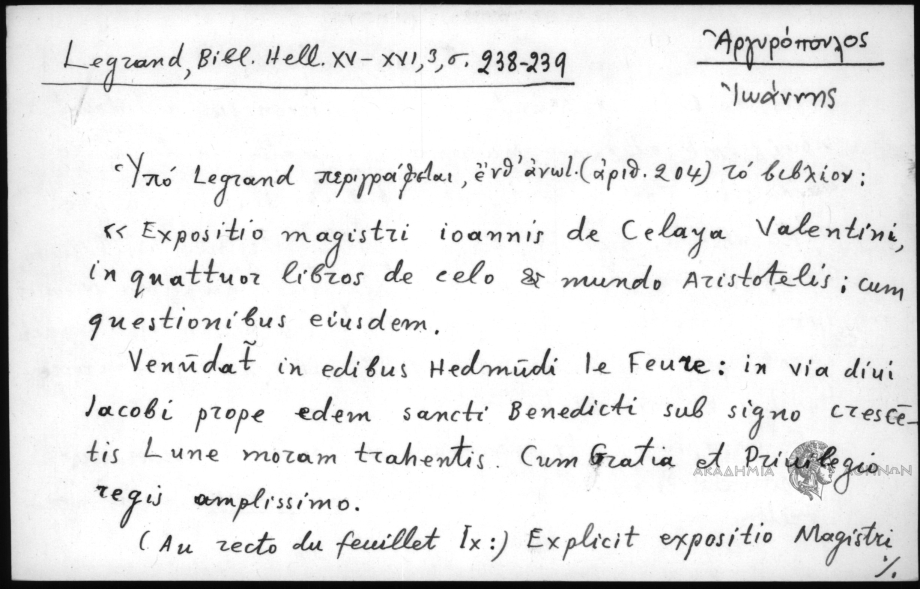 Legrand, Bibl. Hell. XV-XVI,3,σ. 238-239
Ἀργυρόπουλος
Ἰωάννης
Ὑπό Legrand περιγράφεται, ἔνθ' ἀνωτ. (ἀριθ. 204) τό βιβλίον:
«Expositio magistri ioannis de Celaya Valentini,
in quattuor libros de celo & mundo Aristotelis; cum
questionibus eiusdem.
Venūdat̃ in edibus Hedmūdi le Feure: in via diui
Iacobi prope edem sancti Benedicti sub signo crescē-
tis Lune moram trahentis. Cum Gratia et Priuilegio
regis amplissimo.
(Au recto du feuillet Ix:) Explicit expositio Magistri
%.
ΑΚΑΔΗΜΙΑ ΑΘΗΝΩΝ